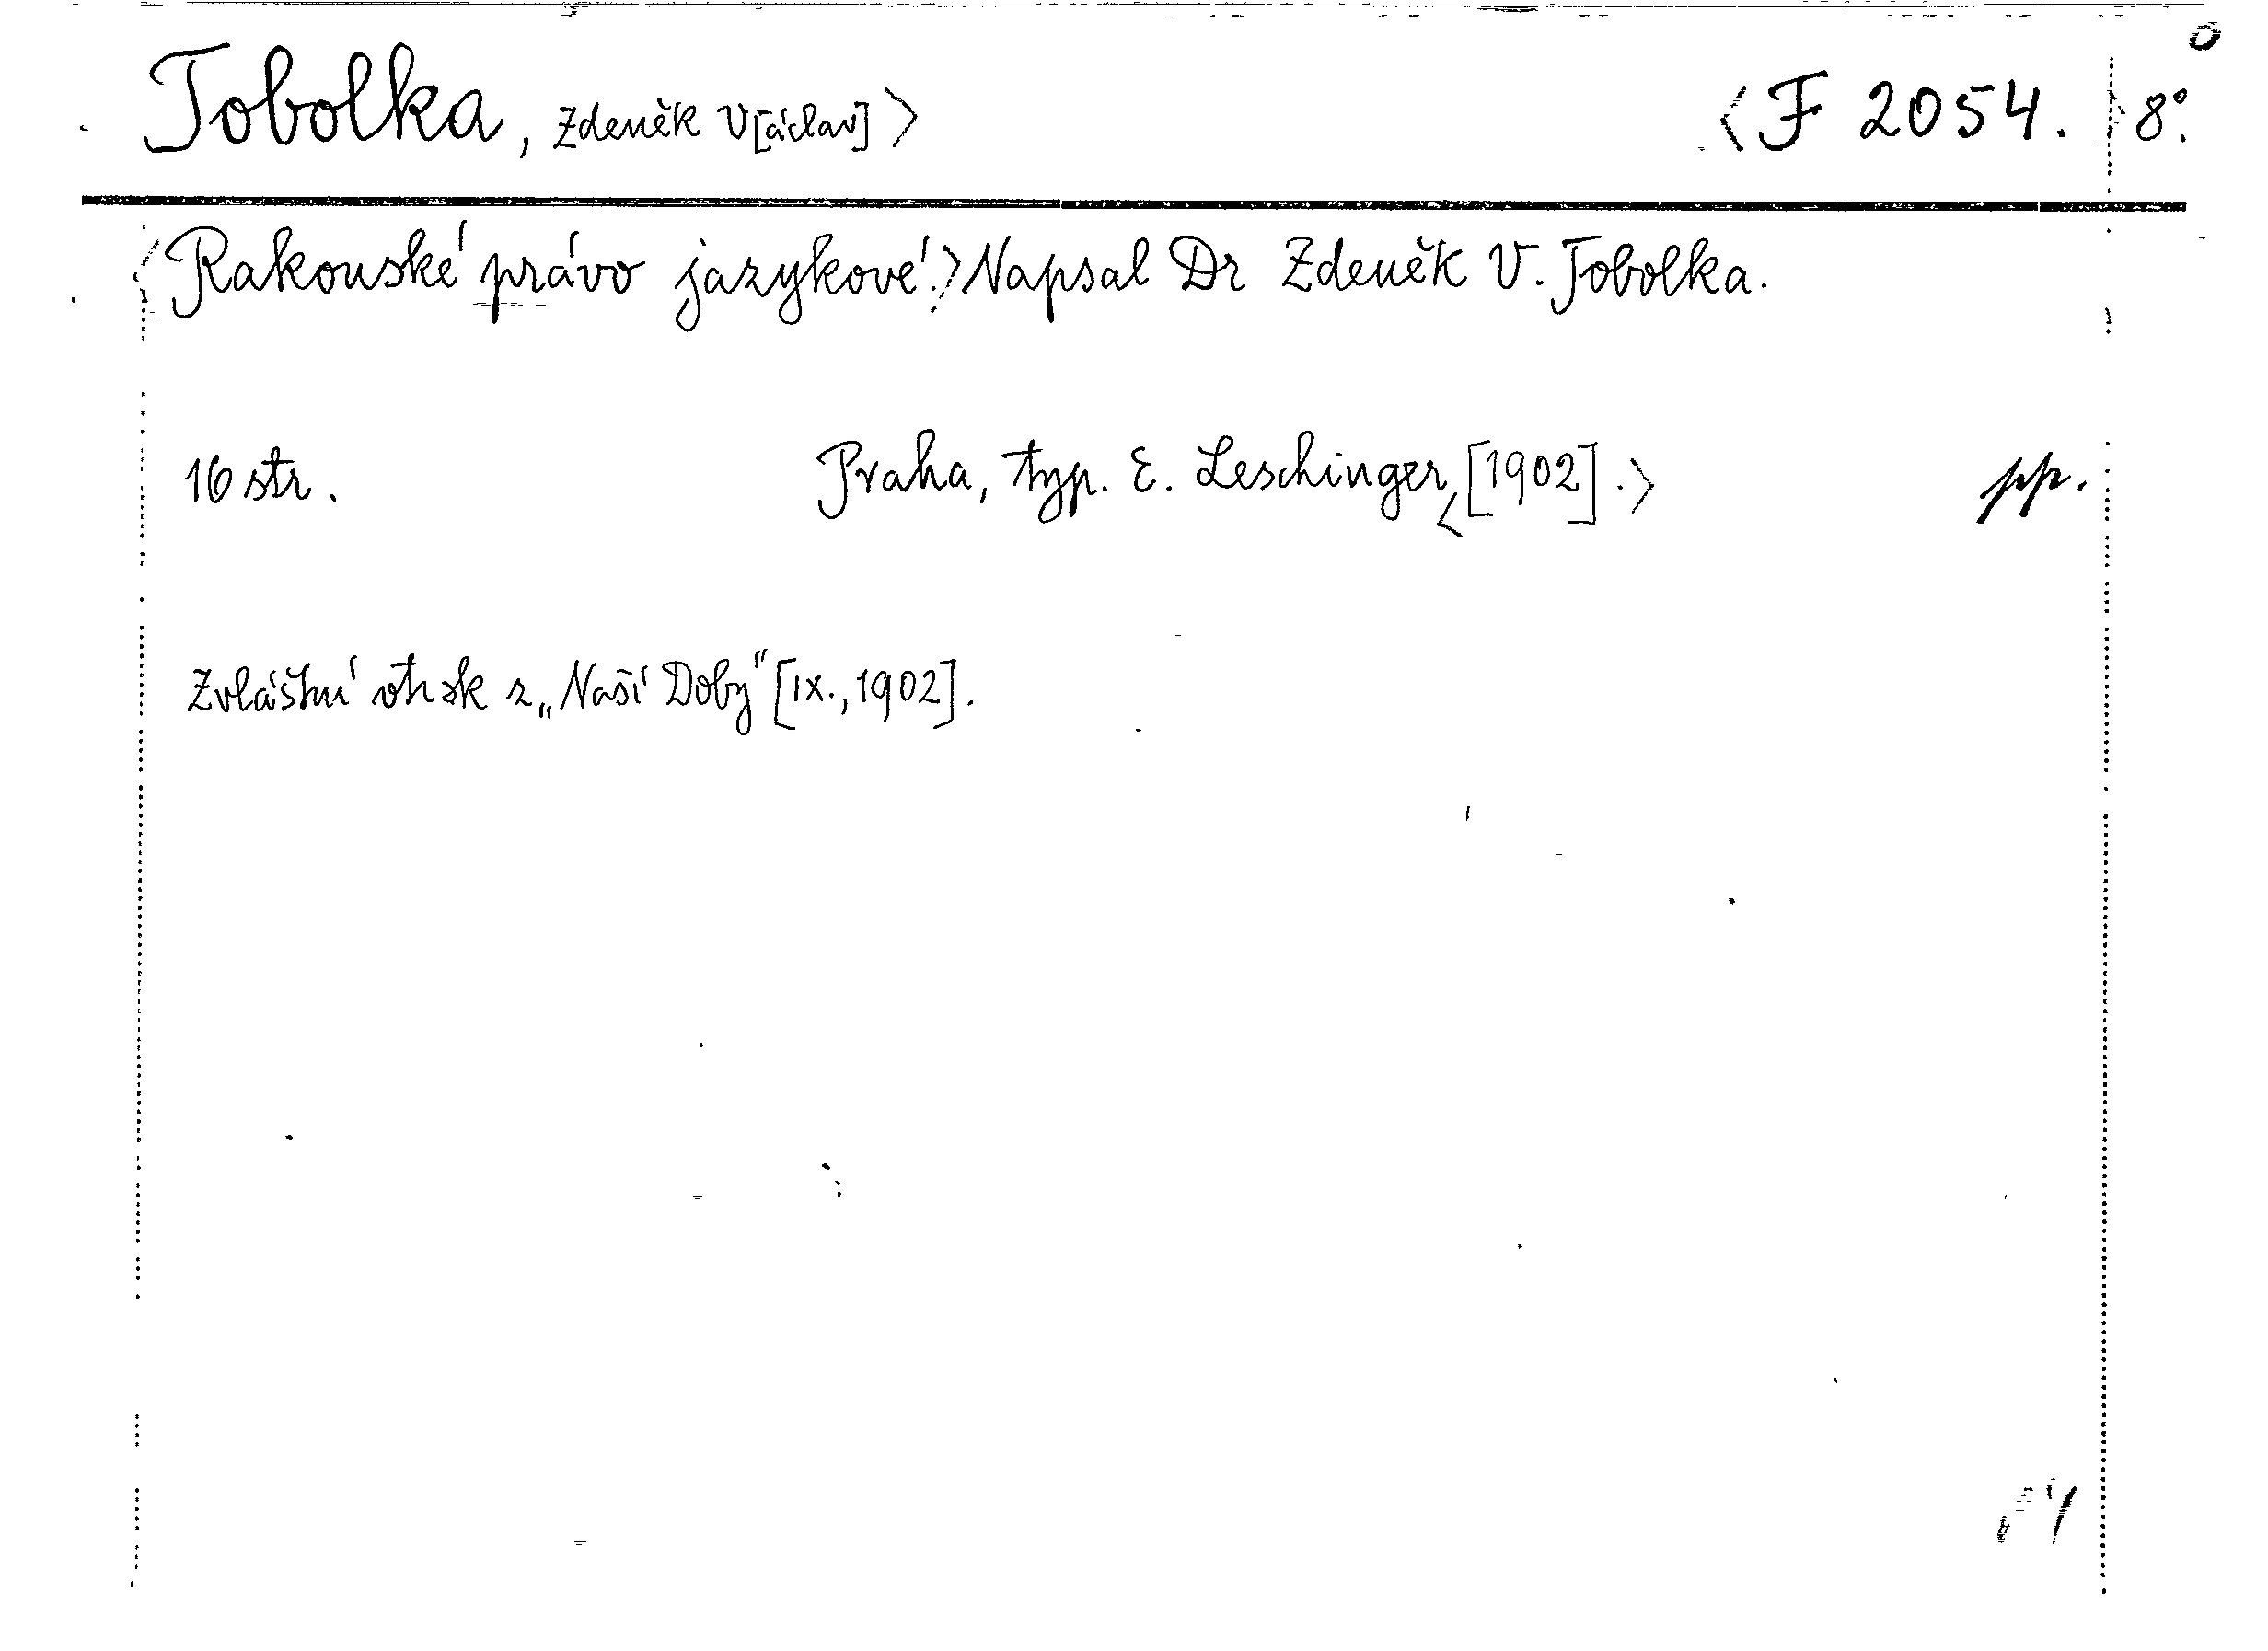 Tobolka, Zdeněk V[áclav]〉 〈F 2054.〉 8°.
〈Rakouské právo jazykové.〉 Napsal Dr Zdeněk V. Tobolka.
16 str. Praha, typ. E. Leschinger, 〈[1902].〉 pp.
Zvláštní otisk z „Naší Doby“ [IX., 1902].